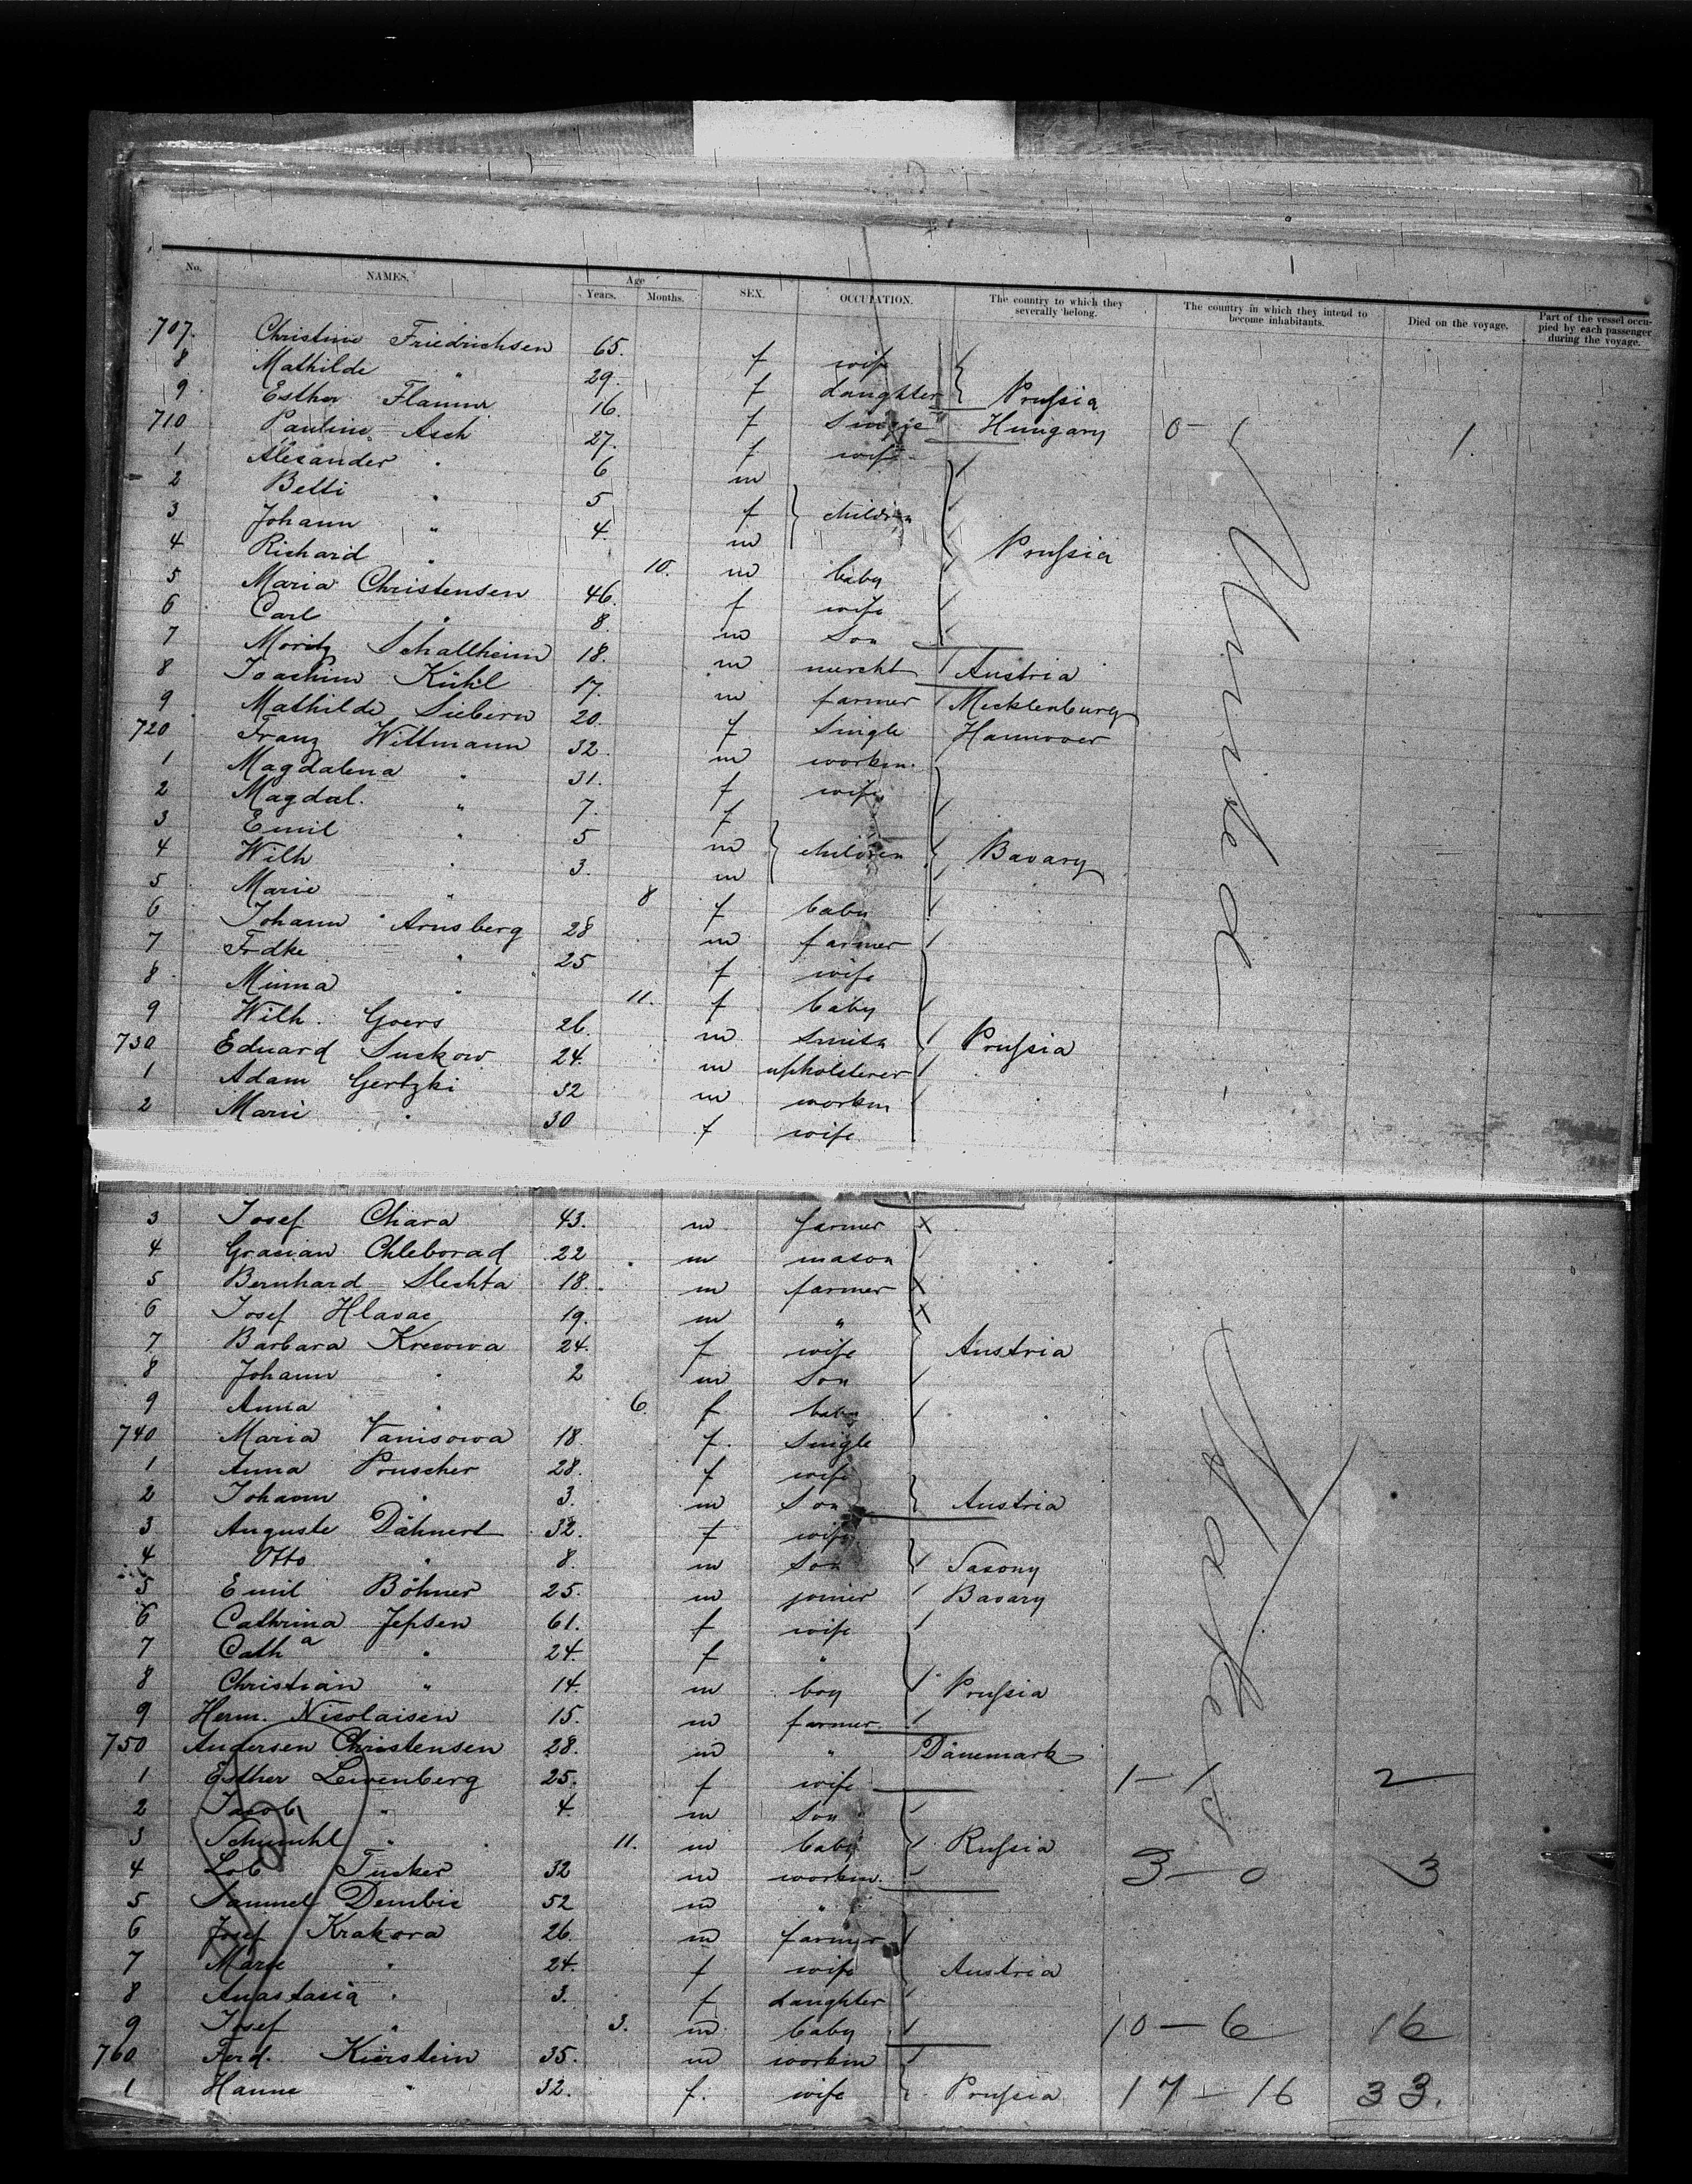 No. NAMES. Age Years. Months. SEX. OCCUPATION. The country to which they severally belong. The country in which they intend to become inhabitants. Died on the voyage. Part of the vessel occupied by each passenger during the voyage.
707. Christine Friedrichsen 65. f wife
8 Mathilde " 29. f daughter Prussia
9 Esther Flamm 16. f Single Hungary 0-1 1.
710 Pauline Asch 27. f wife
1 Alexander " 6 m
2 Betti " 5 f children
3 Johann " 4 m Prussia
4 Richard " 10. m baby
5 Maria Christensen 46. f wife
6 Carl " 8. m Son
7 Moritz Schallheim 18. m mercht Austria
8 Joachim Kühl 17. m farmer Mecklenburg
9 Mathilde Siebern 20. f Single Hannover
720 Franz Wittmann 32. m workm.
1 Magdalena " 31. f wife
2 Magdal. " 7. f
3 Emil " 5 m children Bavary
4 Wilh " 3. m
5 Marie " 8 f baby
6 Johann Arnsberg 28 m farmer
7 Frdke " 25 f wife
8 Minna " 11. f baby
9 Wilh. Goers 26. m Smith Prussia
730 Eduard Suckow 24. m upholsterer
1 Adam Gertzki 32 m workm
2 Marie " 30 f wife
United
3 Josef Chara 43. m farmer
4 Grasian Chleborad 22 m mason
5 Bernhard Slechta 18. m farmer
6 Josef Hlavac 19. m "
7 Barbara Krewwa 24. f wife Austria
8 Johann " 2 m Son
9 Anna " 6. f baby
740 Maria Vanisowa 18. f. Single
1 Anna Pruscher 28. f wife
2 Johann " 3. m Son Austria
3 Auguste Dähnert 32. f wife
4 Otto " 8. m Son Saxony
5 Emil Böhner 25. m joiner Bavary
6 Cathrina Jepsen 61. f wife
7 Cath a " 24. f "
8 Christian " 14. m boy Prussia
9 Herm. Nicolaisen 15. m farmer
750 Andersen Christensen 28. m " Dänemark
1 Esther Lewenberg 25. f wife 1-1 2
2 Jacob " 4. m Son
3 Schmuhl " 11. m baby Russia
4 Lob Tucker 32 m workm. 3-0 3
5 Samuel Dembie 52 m "
6 Josef Krakora 26. m farmer
7 Marie " 24. f wife Austria
8 Anastasia " 3. f daughter
9 Josef " 3. m baby 10-6 16
760 Ferd. Kierstein 35. m workm
1 Hanne " 32. f. wife Prussia 17-16 33.
States